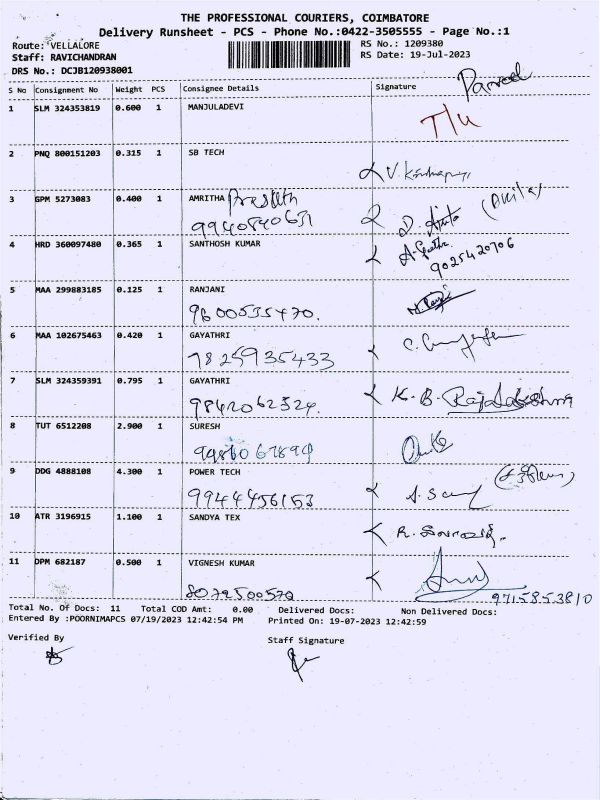 THE PROFESSIONAL COURIERS, COIMBATORE
Delivery Runsheet - PCS - Phone No.:0422-3505555 - Page No.:1
Route: VELLALORE RS No.: 1209380
Staff: RAVICHANDRAN RS Date: 19-Jul-2023
DRS No.: DCJB120938001
S No Consignment No Weight PCS Consignee Details Signature
1 SLM 324353819 0.600 1 MANJULADEVI
T/U
2 PNQ 800151203 0.315 1 SB TECH
3 GPM 5273083 0.400 1 AMRITHA
9940840631
4 HRD 360097480 0.365 1 SANTHOSH KUMAR
9025420706
5 MAA 299883185 0.125 1 RANJANI
9600535470.
6 MAA 102675463 0.420 1 GAYATHRI
7825935433
7 SLM 324359391 0.795 1 GAYATHRI
9842062524. K. B.
8 TUT 6512208 2.900 1 SURESH
9 DDG 4888108 4.300 1 POWER TECH
9944456153
10 ATR 3196915 1.100 1 SANDYA TEX
11 DPM 682187 0.500 1 VIGNESH KUMAR
8072500570 9715853810
Total No. Of Docs: 11 Total COD Amt: 0.00 Delivered Docs: Non Delivered Docs:
Entered By :POORNIMAPCS 07/19/2023 12:42:54 PM Printed On: 19-07-2023 12:42:59
Verified By Staff Signature